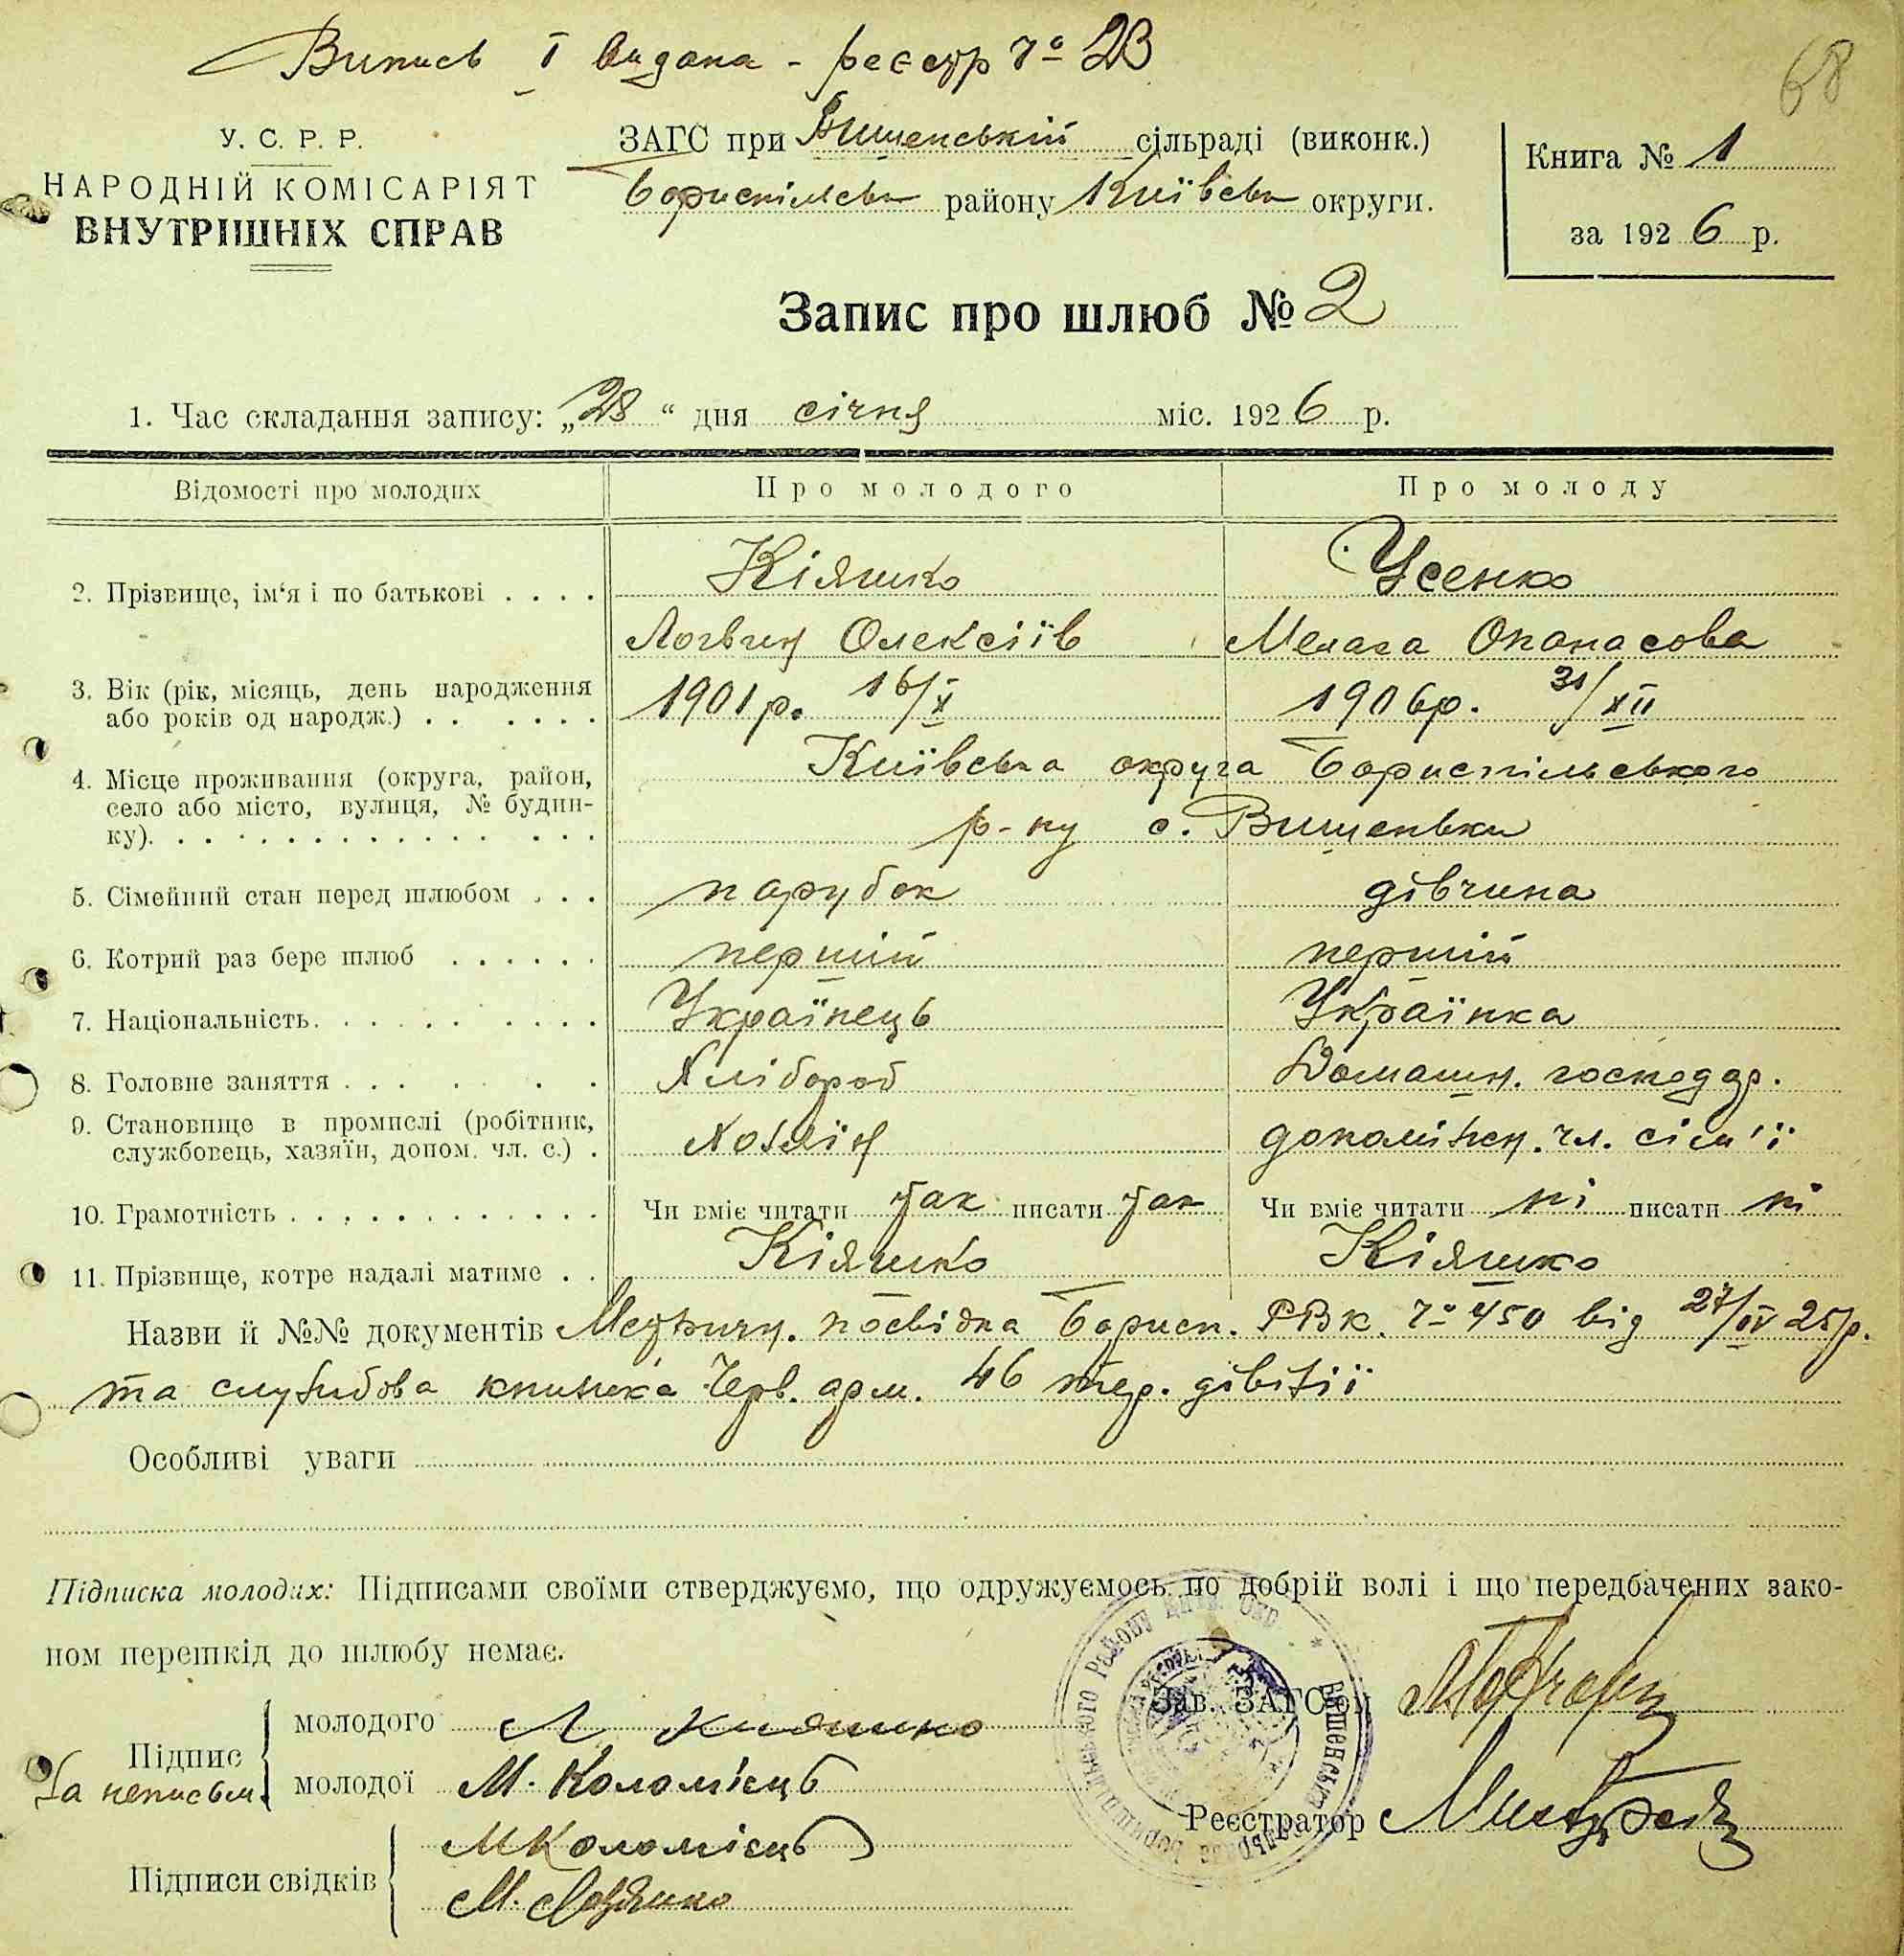 Випись I видана - реєстр № 23
68
У. С. Р. Р.
НАРОДНІЙ КОМІСАРІЯТ
ВНУТРІШНІХ СПРАВ
ЗАГС при Вишенській сільраді (виконк.)
Бориспільськ району Київськ округи.
Книга № 1
за 1926 р.
Запис про шлюб № 2
1. Час складання запису: „28“ дня січня міс. 1926 р.
Відомості про молодих Про молодого Про молоду
2. Прізвище, ім‘я і по батькові . . . . Кіяшко Усенко
Логвин Олексіїв Мелага Опанасова
3. Вік (рік, місяць, день народження 1901 р. 16/X 1906 р. 31/XII
або років од народж.) . . . . . .
4. Місце проживання (округа, район, Київська округа Бориспільського
село або місто, вулиця, № будин- р-ну с. Вишеньки
ку). . . . . . . . . . . . . . .
5. Сімейний стан перед шлюбом . . . парубок дівчина
6. Котрий раз бере шлюб . . . . . . перший перший
7. Національність. . . . . . . . . . Українець Українка
8. Головне заняття . . . . . . Хлібороб Домашн. господар.
9. Становище в промислі (робітник,
службовець, хазяїн, допом. чл. с.) . Хозяїн допоміжн. чл. сім'ї
10. Грамотність . . . . . . . . . . . . Чи вміє читати так писати так Чи вміє читати ні писати ні
11. Прізвище, котре надалі матиме . . Кіяшко Кіяшко
Назви й №№ документів Метричн. посвідка Борисп. РВК. № 450 від 27/IV 25 р.
та служbова книжка Черв. арм. 46 тер. дівізії
Особливі уваги
Підписка молодих: Підписами своїми стверджуємо, що одружуємось по добрій волі і що передбачених зако-
ном перешкід до шлюбу немає.
Зав. ЗАГС'ом
Підпис
молодого Л Кияшко
За неписьм. молодої М. Коломієць
Реєстратор
Підписи свідків
М Коломієць
М.